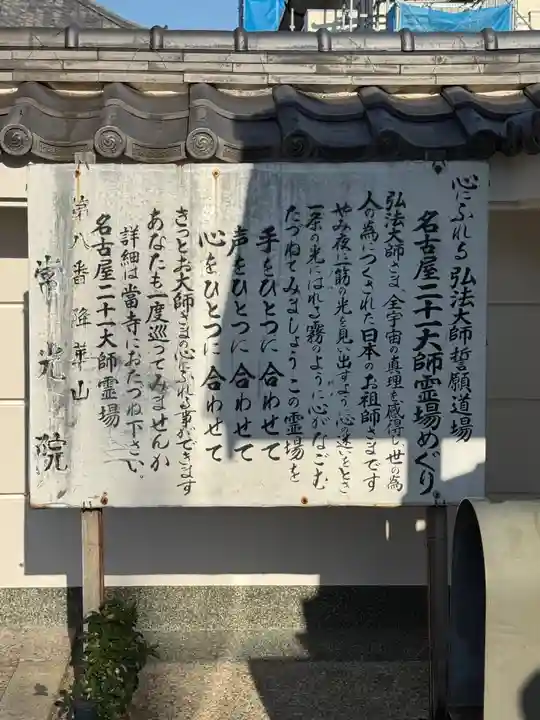 心にふれる 弘法大師誓願道場
名古屋二十一大師霊場めぐり
弘法大師さま 全宇宙の真理を感得し世の為
人の為につくされた日本のお祖師さまです
やみ夜に一筋の光を見い出すよう心の迷いをとき
一条の光にはれる霧のように心がなごむ
たづねてみましょうこの霊場を
手をひとつに合わせて
声をひとつに合わせて
心をひとつに合わせて
きっとお大師さまの心にふれる事ができます
あなたも一度巡ってみませんか
詳細は當寺におたづね下さい。
名古屋二十一大師霊場
第八番 降華山
常光院